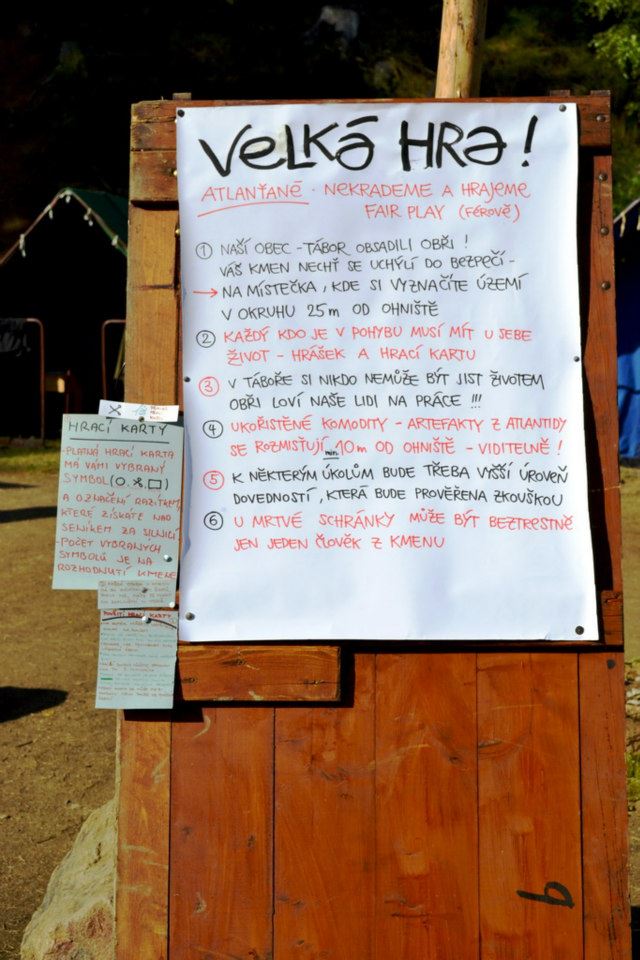 VELKÁ HRA!
ATLANŤANÉ - NEKRADEME A HRAJEME
FAIR PLAY (FÉROVĚ)
① NAŠÍ OBEC - TÁBOR OBSADILI OBŘI !
VÁŠ KMEN NECHŤ SE UCHÝLÍ DO BEZPEČÍ -
→ NA MÍSTEČKA, KDE SI VYZNAČÍTE ÚZEMÍ
V OKRUHU 25m OD OHNIŠTĚ
② KAŽDÝ KDO JE V POHYBU MUSÍ MÍT U SEBE
ŽIVOT - HRÁŠEK A HRACÍ KARTU
③ V TÁBOŘE SI NIKDO NEMŮŽE BÝT JIST ŽIVOTEM
OBŘI LOVÍ NAŠE LIDI NA PRÁCE !!!
④ UKOŘISTĚNÉ KOMODITY - ARTEFAKTY Z ATLANTIDY
SE ROZMISŤUJÍ min. 10m OD OHNIŠTĚ - VIDITELNĚ !
⑤ K NĚKTERÝM ÚKOLŮM BUDE TŘEBA VYŠŠÍ ÚROVEŇ
DOVEDNOSTÍ, KTERÁ BUDE PROVĚŘENA ZKOUŠKOU
⑥ U MRTVÉ SCHRÁNKY MŮŽE BÝT BEZTRESTNĚ
JEN JEDEN ČLOVĚK Z KMENU
HRACÍ KARTY
- PLATNÁ HRACÍ KARTA
MÁ VÁMI VYBRANÝ
SYMBOL (O, ✂, □)
A OZNAČENÍ RAZÍTKEM,
KTERÉ ZÍSKÁTE NAD
SENÍKEM ZA SILNICÍ
- POČET VYBRANÝCH
SYMBOLŮ JE NA
ROZHODNUTÍ KMENE
POUŽITÍ HRACÍ KARTY
6